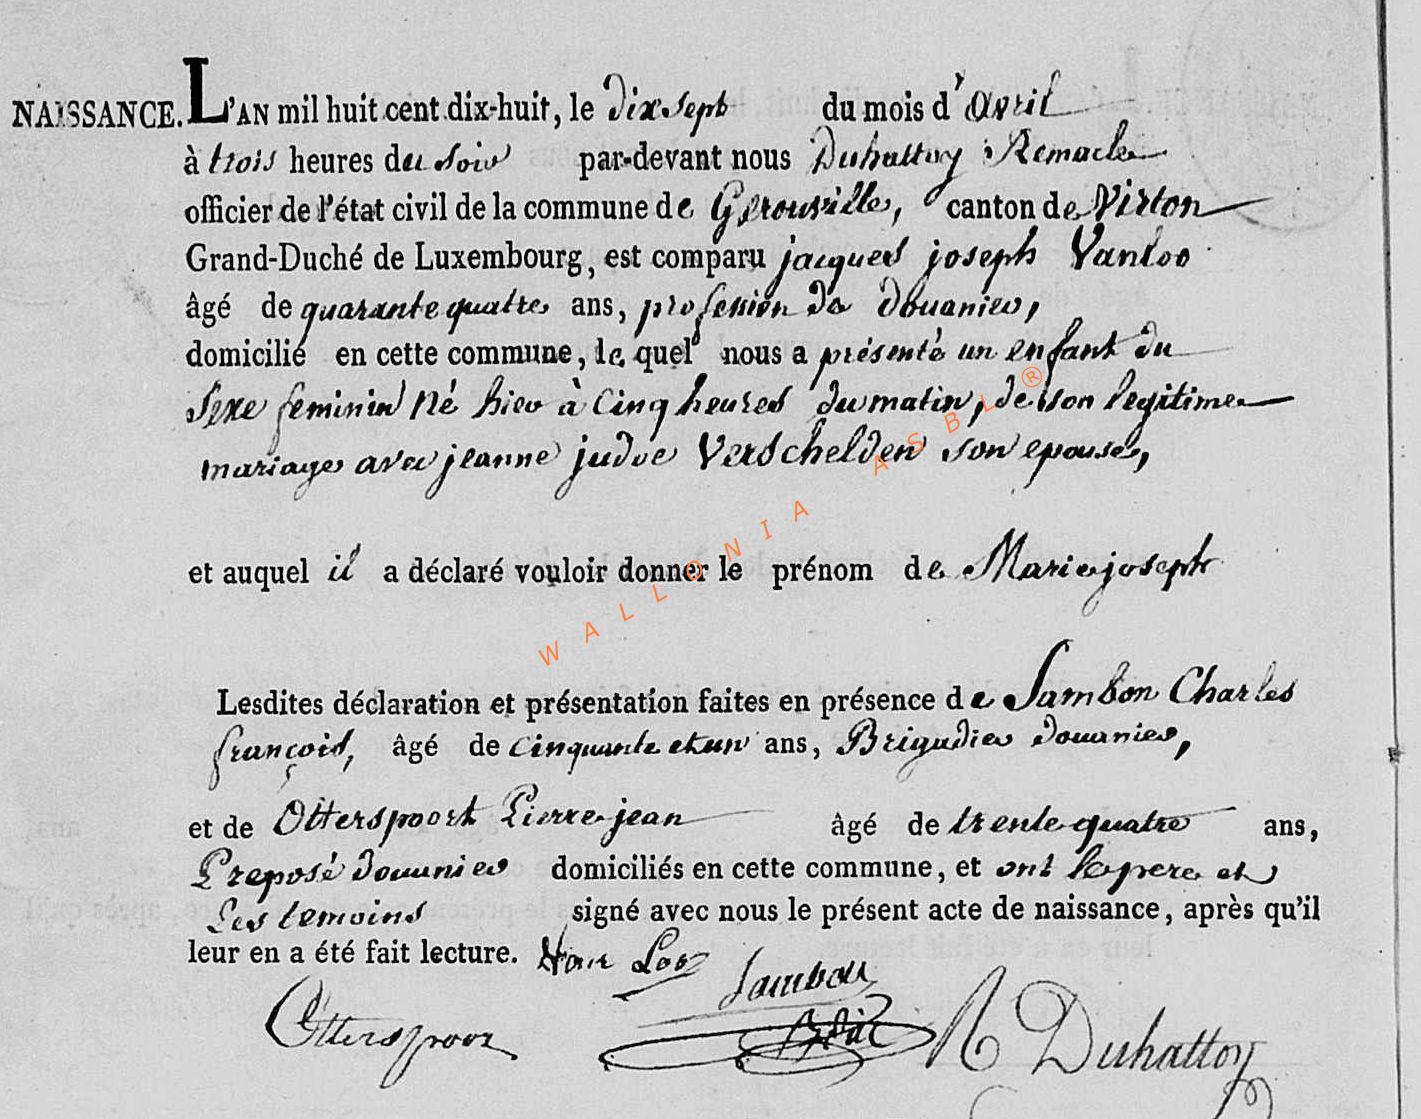 NAISSANCE. L'AN mil huit cent dix-huit, le dix sept du mois d'avril
à trois heures du soir par-devant nous Duhattoy Remacle
officier de l'état civil de la commune de Gérouville, canton de Virton
Grand-Duché de Luxembourg, est comparu jacques joseph Vanloo
âgé de quarante quatre ans, profession de douanier,
domicilié en cette commune, le quel nous a présenté un enfant du
Sexe feminin Né hier à Cinq heures du matin, de son legitime
mariage avec jeanne judoc Verschelden son epouse,
et auquel il a déclaré vouloir donner le prénom de Marie joseph
Lesdites déclaration et présentation faites en présence de Sambon Charles
françois, âgé de cinquante et un ans, Brigadier douanier,
et de Otterspoort Pierre jean âgé de trente quatre ans,
Preposé douanier domiciliés en cette commune, et ont le pere et
Les temoins signé avec nous le présent acte de naissance, après qu'il
leur en a été fait lecture. Van Loo Sambon
Otterspoor Bdier R Duhattoy
WALLONIA ASBL ®